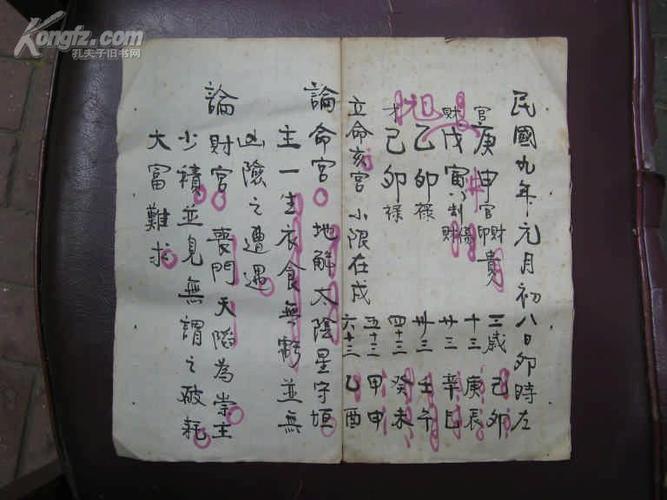 Kongfz.com
孔夫子旧书网
民國九年元月初八日卯時左
官庚申官印財貴
財戊寅
日乙卯祿
才己卯祿
立命亥宮 小限在戌
三歲 己卯
十三 庚辰
廿三 辛巳
卅三 壬午
四十三 癸未
五十三 甲申
六十三 乙酉
論命宮 地解太陰星守垣
主一生衣食無虧並無
凶險之遭遇
論財宮 喪門天陷為崇主
少積並見無謂之破耗
大富難求